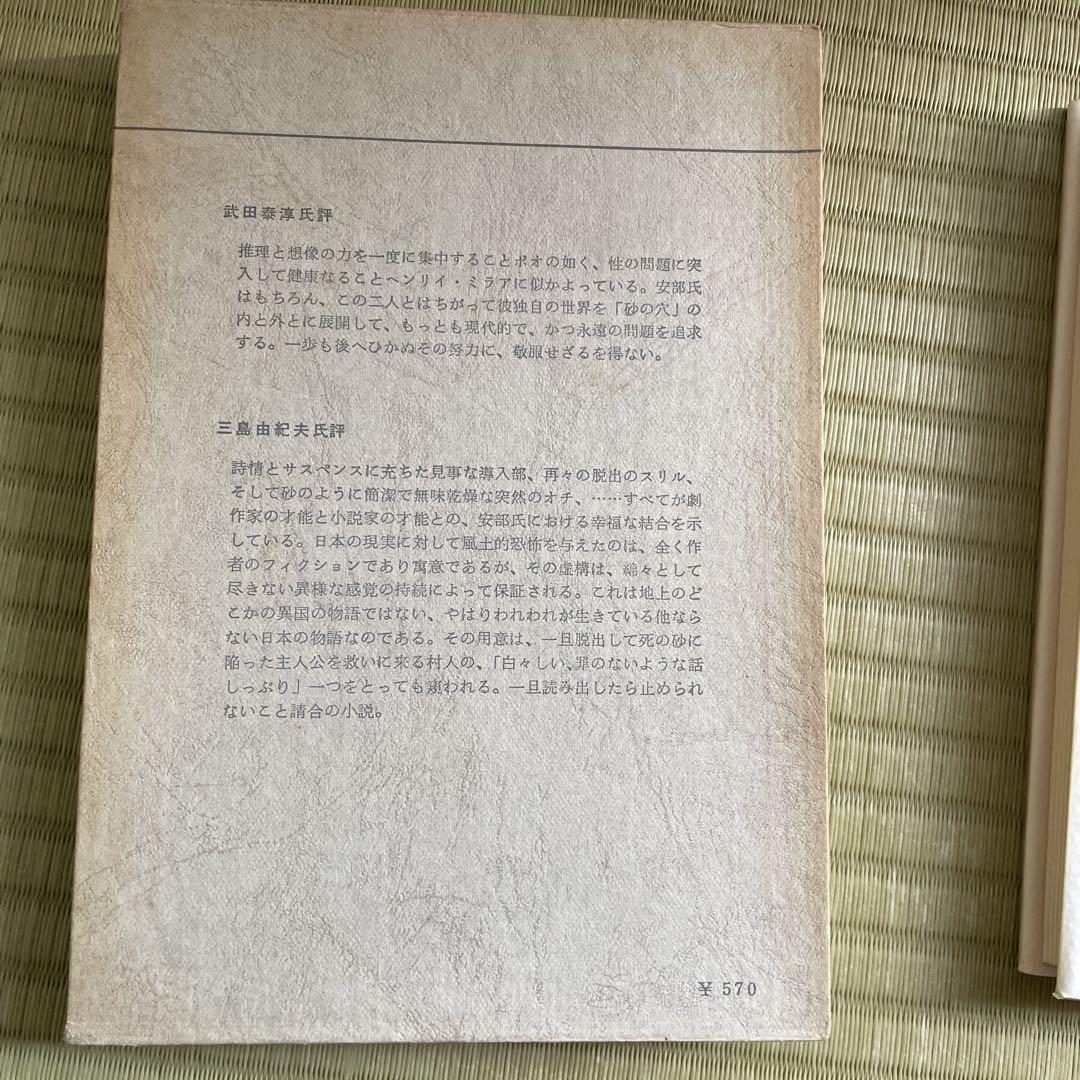 武田泰淳氏評
推理と想像の力を一度に集中することポオの如く、性の問題に突
入して健康なることヘンリイ・ミラアに似かよっている。安部氏
はもちろん、この二人とはちがって彼独自の世界を「砂の穴」の
内と外とに展開して、もっとも現代的で、かつ永遠の問題を追求
する。一歩も後へひかぬその努力に、敬服せざるを得ない。
三島由紀夫氏評
詩情とサスペンスに充ちた見事な導入部、再々の脱出のスリル、
そして砂のように簡潔で無味乾燥な突然のオチ、……すべてが劇
作家の才能と小説家の才能との、安部氏における幸福な結合を示
している。日本の現実に対して風土的恐怖を与えたのは、全く作
者のフィクションであり寓意であるが、その虚構は、綿々として
尽きない異様な感覚の持続によって保証される。これは地上のど
こかの異国の物語ではない、やはりわれわれが生きている他なら
ない日本の物語なのである。その用意は、一旦脱出して死の砂に
陥った主人公を救いに来る村人の、「白々しい、罪のないような話
しっぷり」一つをとっても窺われる。一旦読み出したら止められ
ないこと請合の小説。
¥570